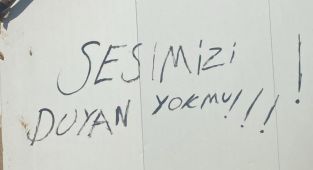 SESİMİZİ
DUYAN YOKMU!!!!